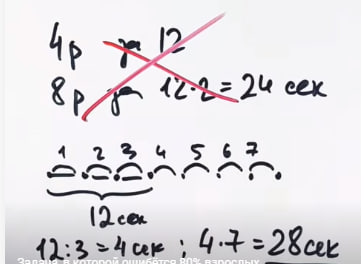 4р за 12
8р за 12·2=24 сек
1 2 3 4 5 6 7
12 сек
12:3=4 сек ; 4·7=28 сек
Задача, в которой ошибётся 80% взрослых